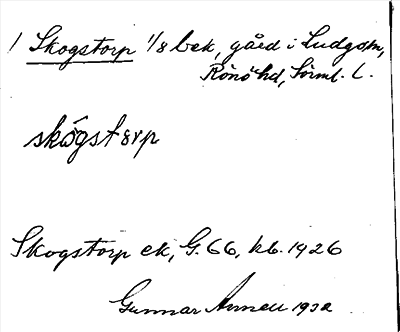 / Skogstorp 1/8 bek, gård i Ludgom,
Rönö hd, Sörml. L.
skógstorp
Skogstorp ek, G. 66, kb. 1926
Gunnar 1932